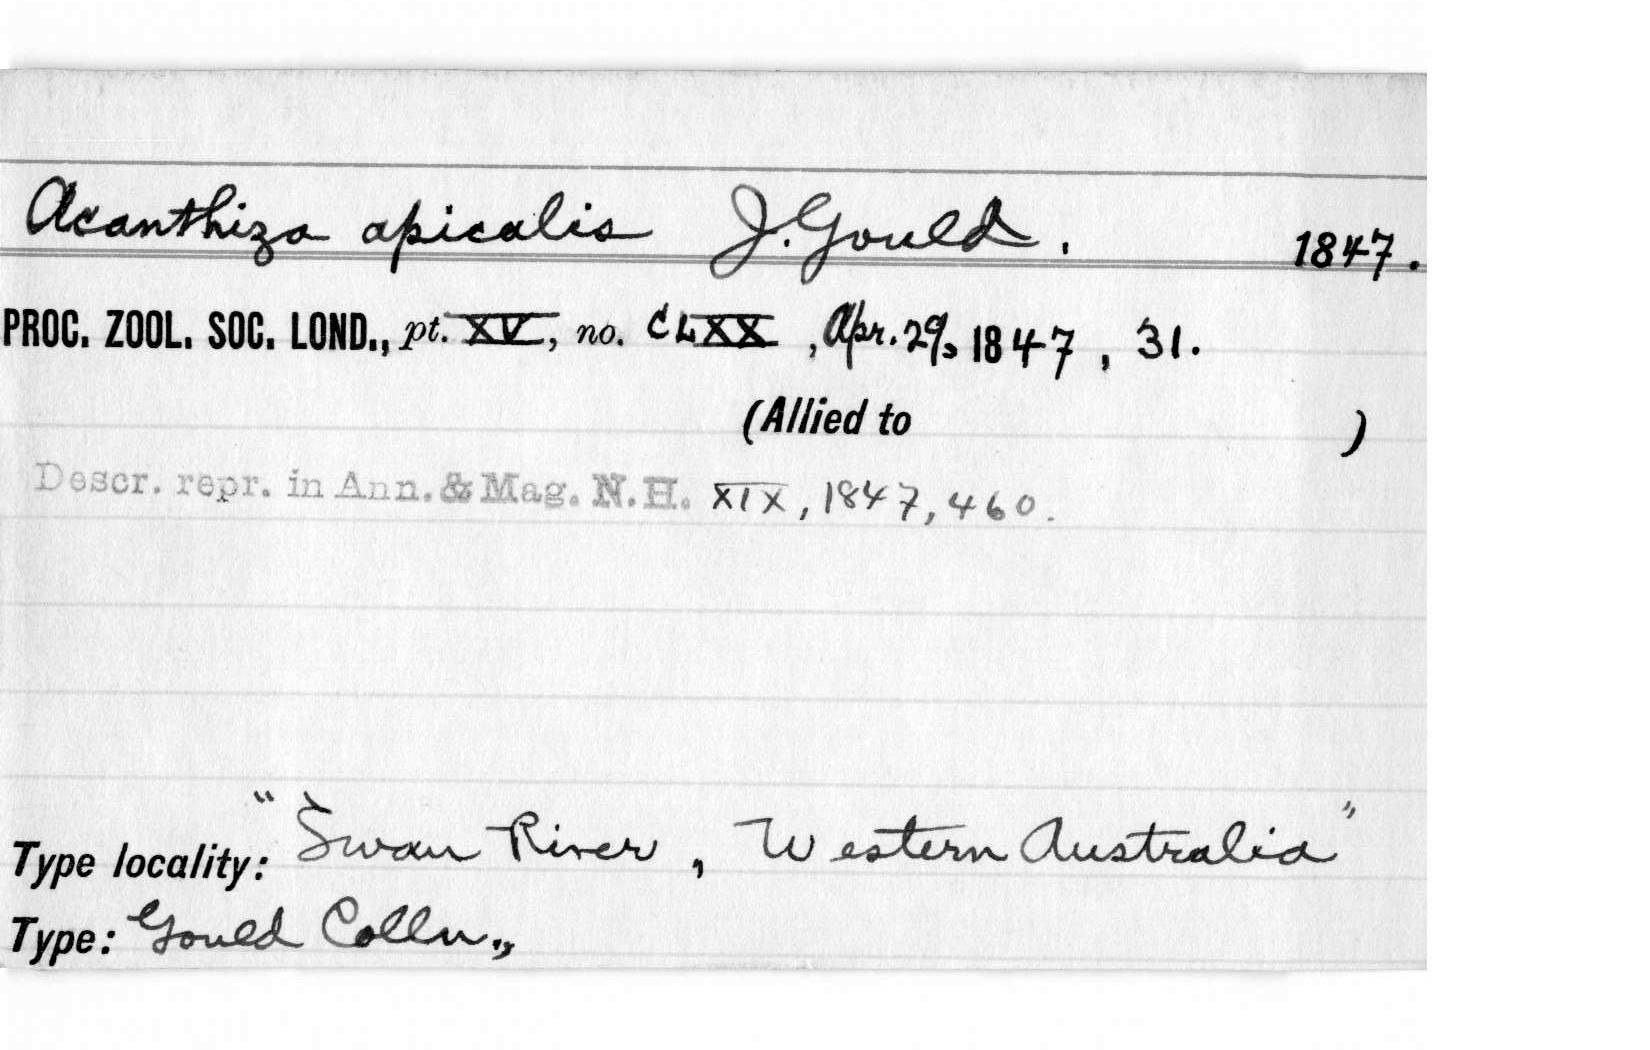 Acanthiza apicalis J. Gould. 1847.
PROC. ZOOL. SOC. LOND., pt. XV, no. CLXX, Apr. 29, 1847, 31.
(Allied to )
Descr. repr. in Ann. & Mag. N.H. XIX, 1847, 460.
Type locality: "Swan River, Western Australia"
Type: Gould Colln.,